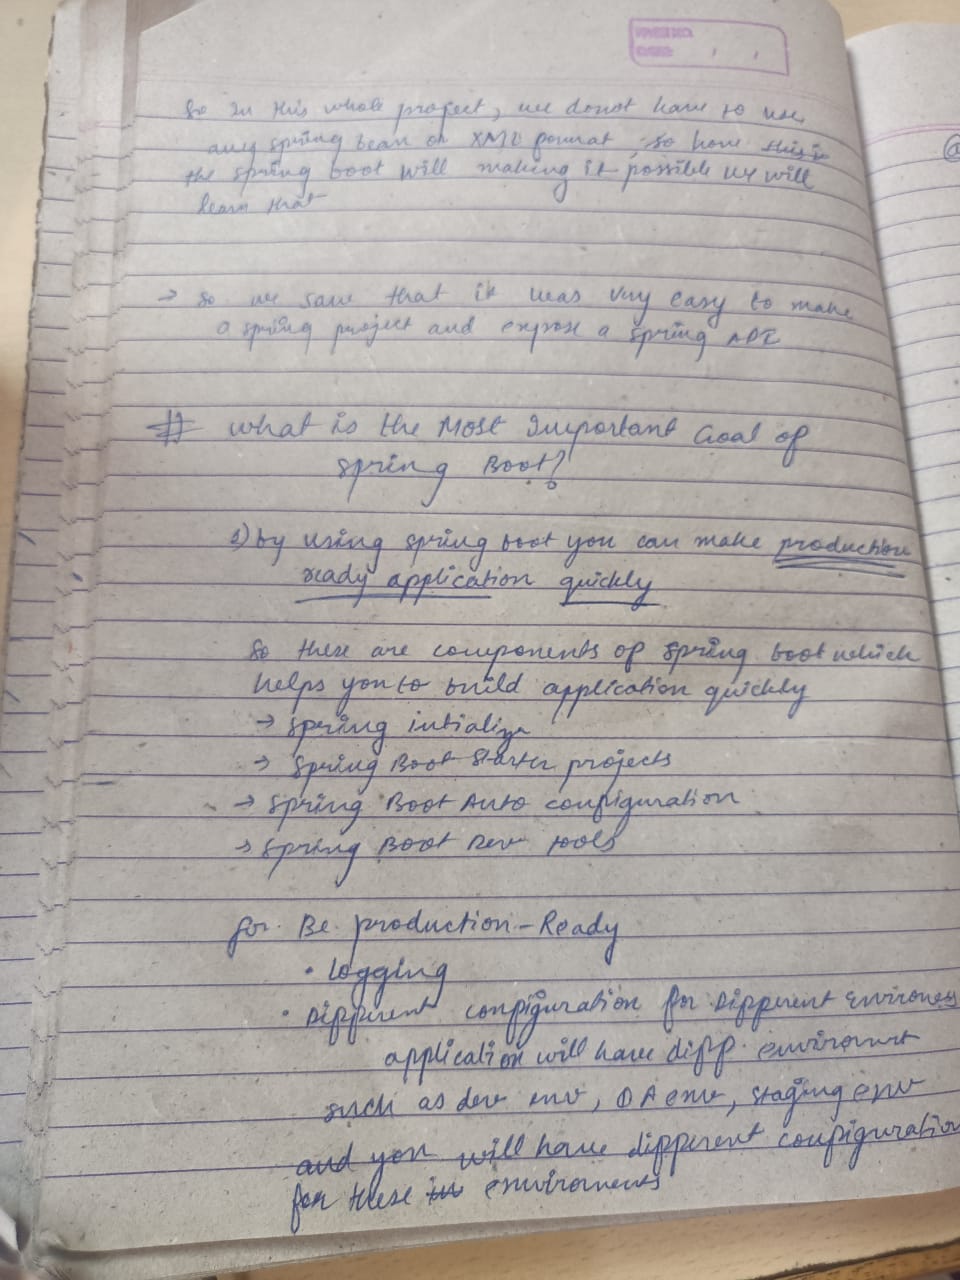 So In this whole project, we donot have to use
any spring bean or XML format, so how this is
the spring boot will making it possible we will
learn that
→ So we saw that it was very easy to make
a spring project and expose a spring API
# What is the Most Important Goal of
Spring Boot?
1) by using spring boot you can make production
ready application quickly
So there are components of spring boot which
helps you to build application quickly
→ Spring intialize
→ Spring Boot Starter projects
→ Spring Boot Auto configuration
→ Spring Boot Dev tools
for Be production-Ready
• Logging
• Different configuration for Different
application will have diff. enviroment
such as dev env, QA env, staging env
and you will have different configuration
for these enviroments